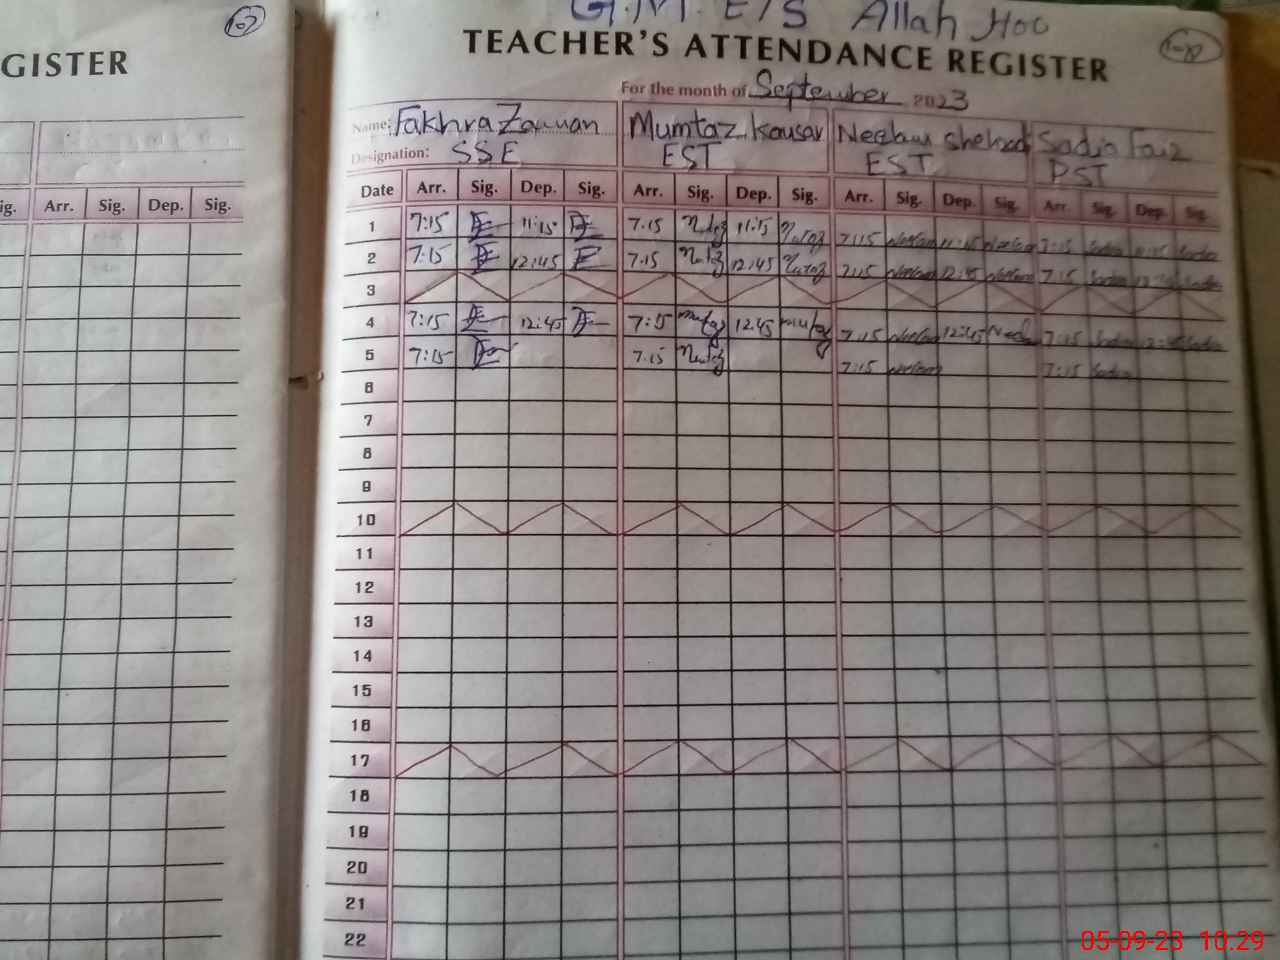 G.M.E/S Allah Hoo
GISTER
TEACHER'S ATTENDANCE REGISTER
For the month of September 2023
Name: Fakhra Zaman Mumtaz Kousar Sadia Faiz
Designation: SSE EST EST PST
ig. Arr. Sig. Dep. Sig.
Date Arr. Sig. Dep. Sig. Arr. Sig. Dep. Sig. Arr. Sig. Dep. Sig. Arr. Sig. Dep. Sig.
1 7:15 11:15 7.15 11:15 7:15 11:15 7:15 Sadia 11:15 Sadia
2 7:15 12:45 7.15 12:45 7:15 12:45 7:15 Sadia Sadia
3
4 7:15 12:45 7:15 mumtaz 12.45 mumtaz 7:15 12:45 7:15 Sadia 12:45 Sadia
5 7:15 7.15 7:15 7:15 Sadia
6
7
8
9
10
11
12
13
14
15
16
17
18
19
20
21
22
05-09-23 10.29